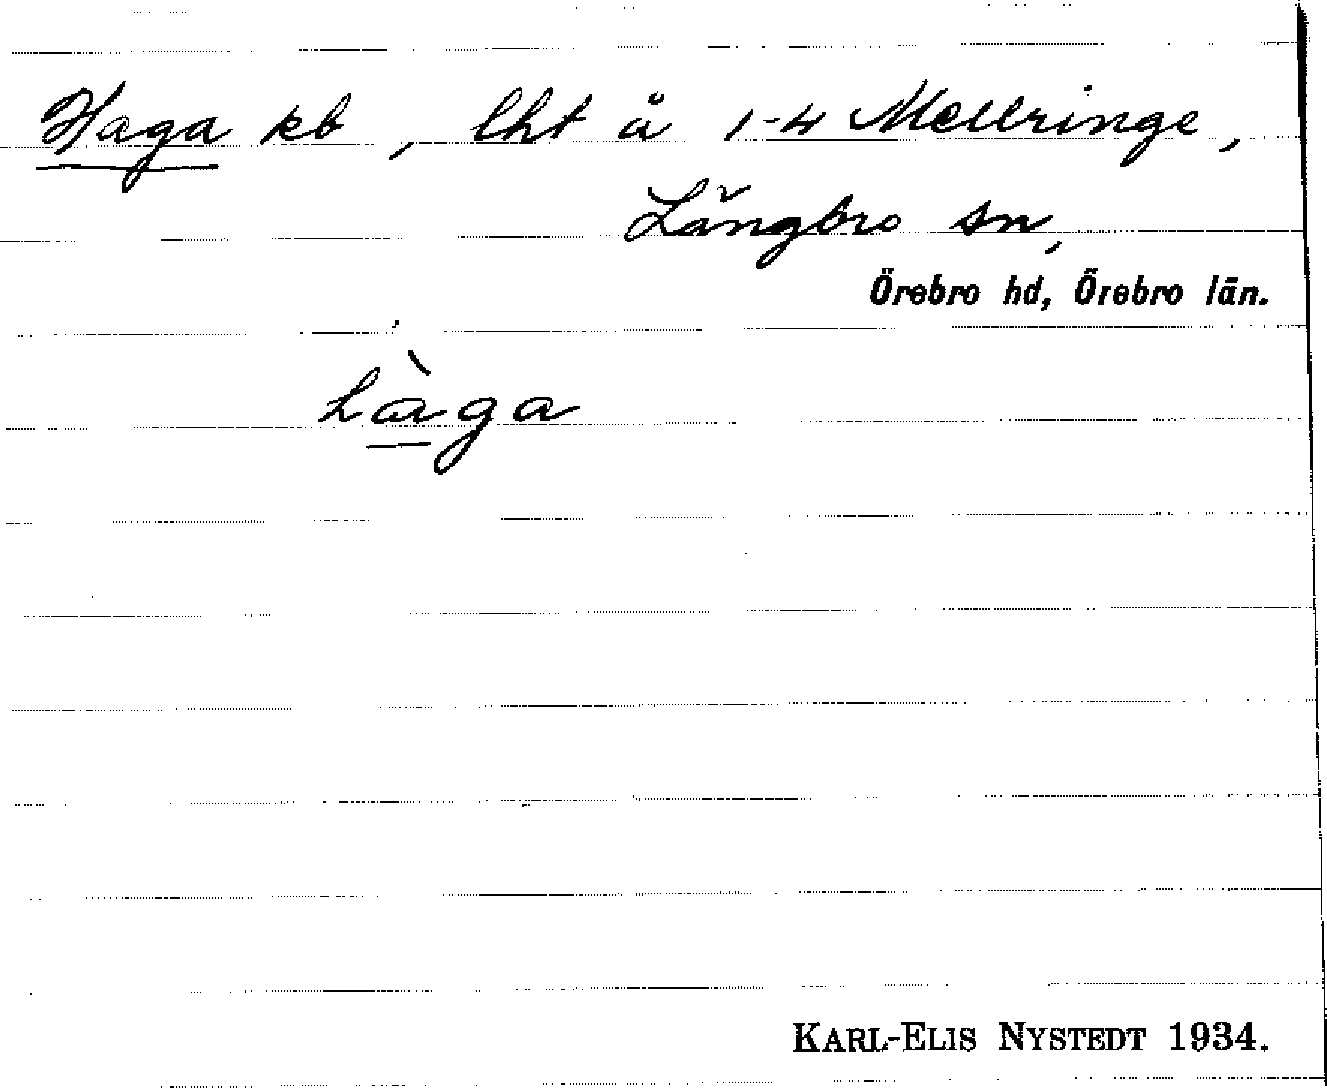 Haga kb, lht å 1-4 Mellringe,
Långbro sn,
Örebro hd, Örebro län.
hàga
KARL-ELIS NYSTEDT 1934.